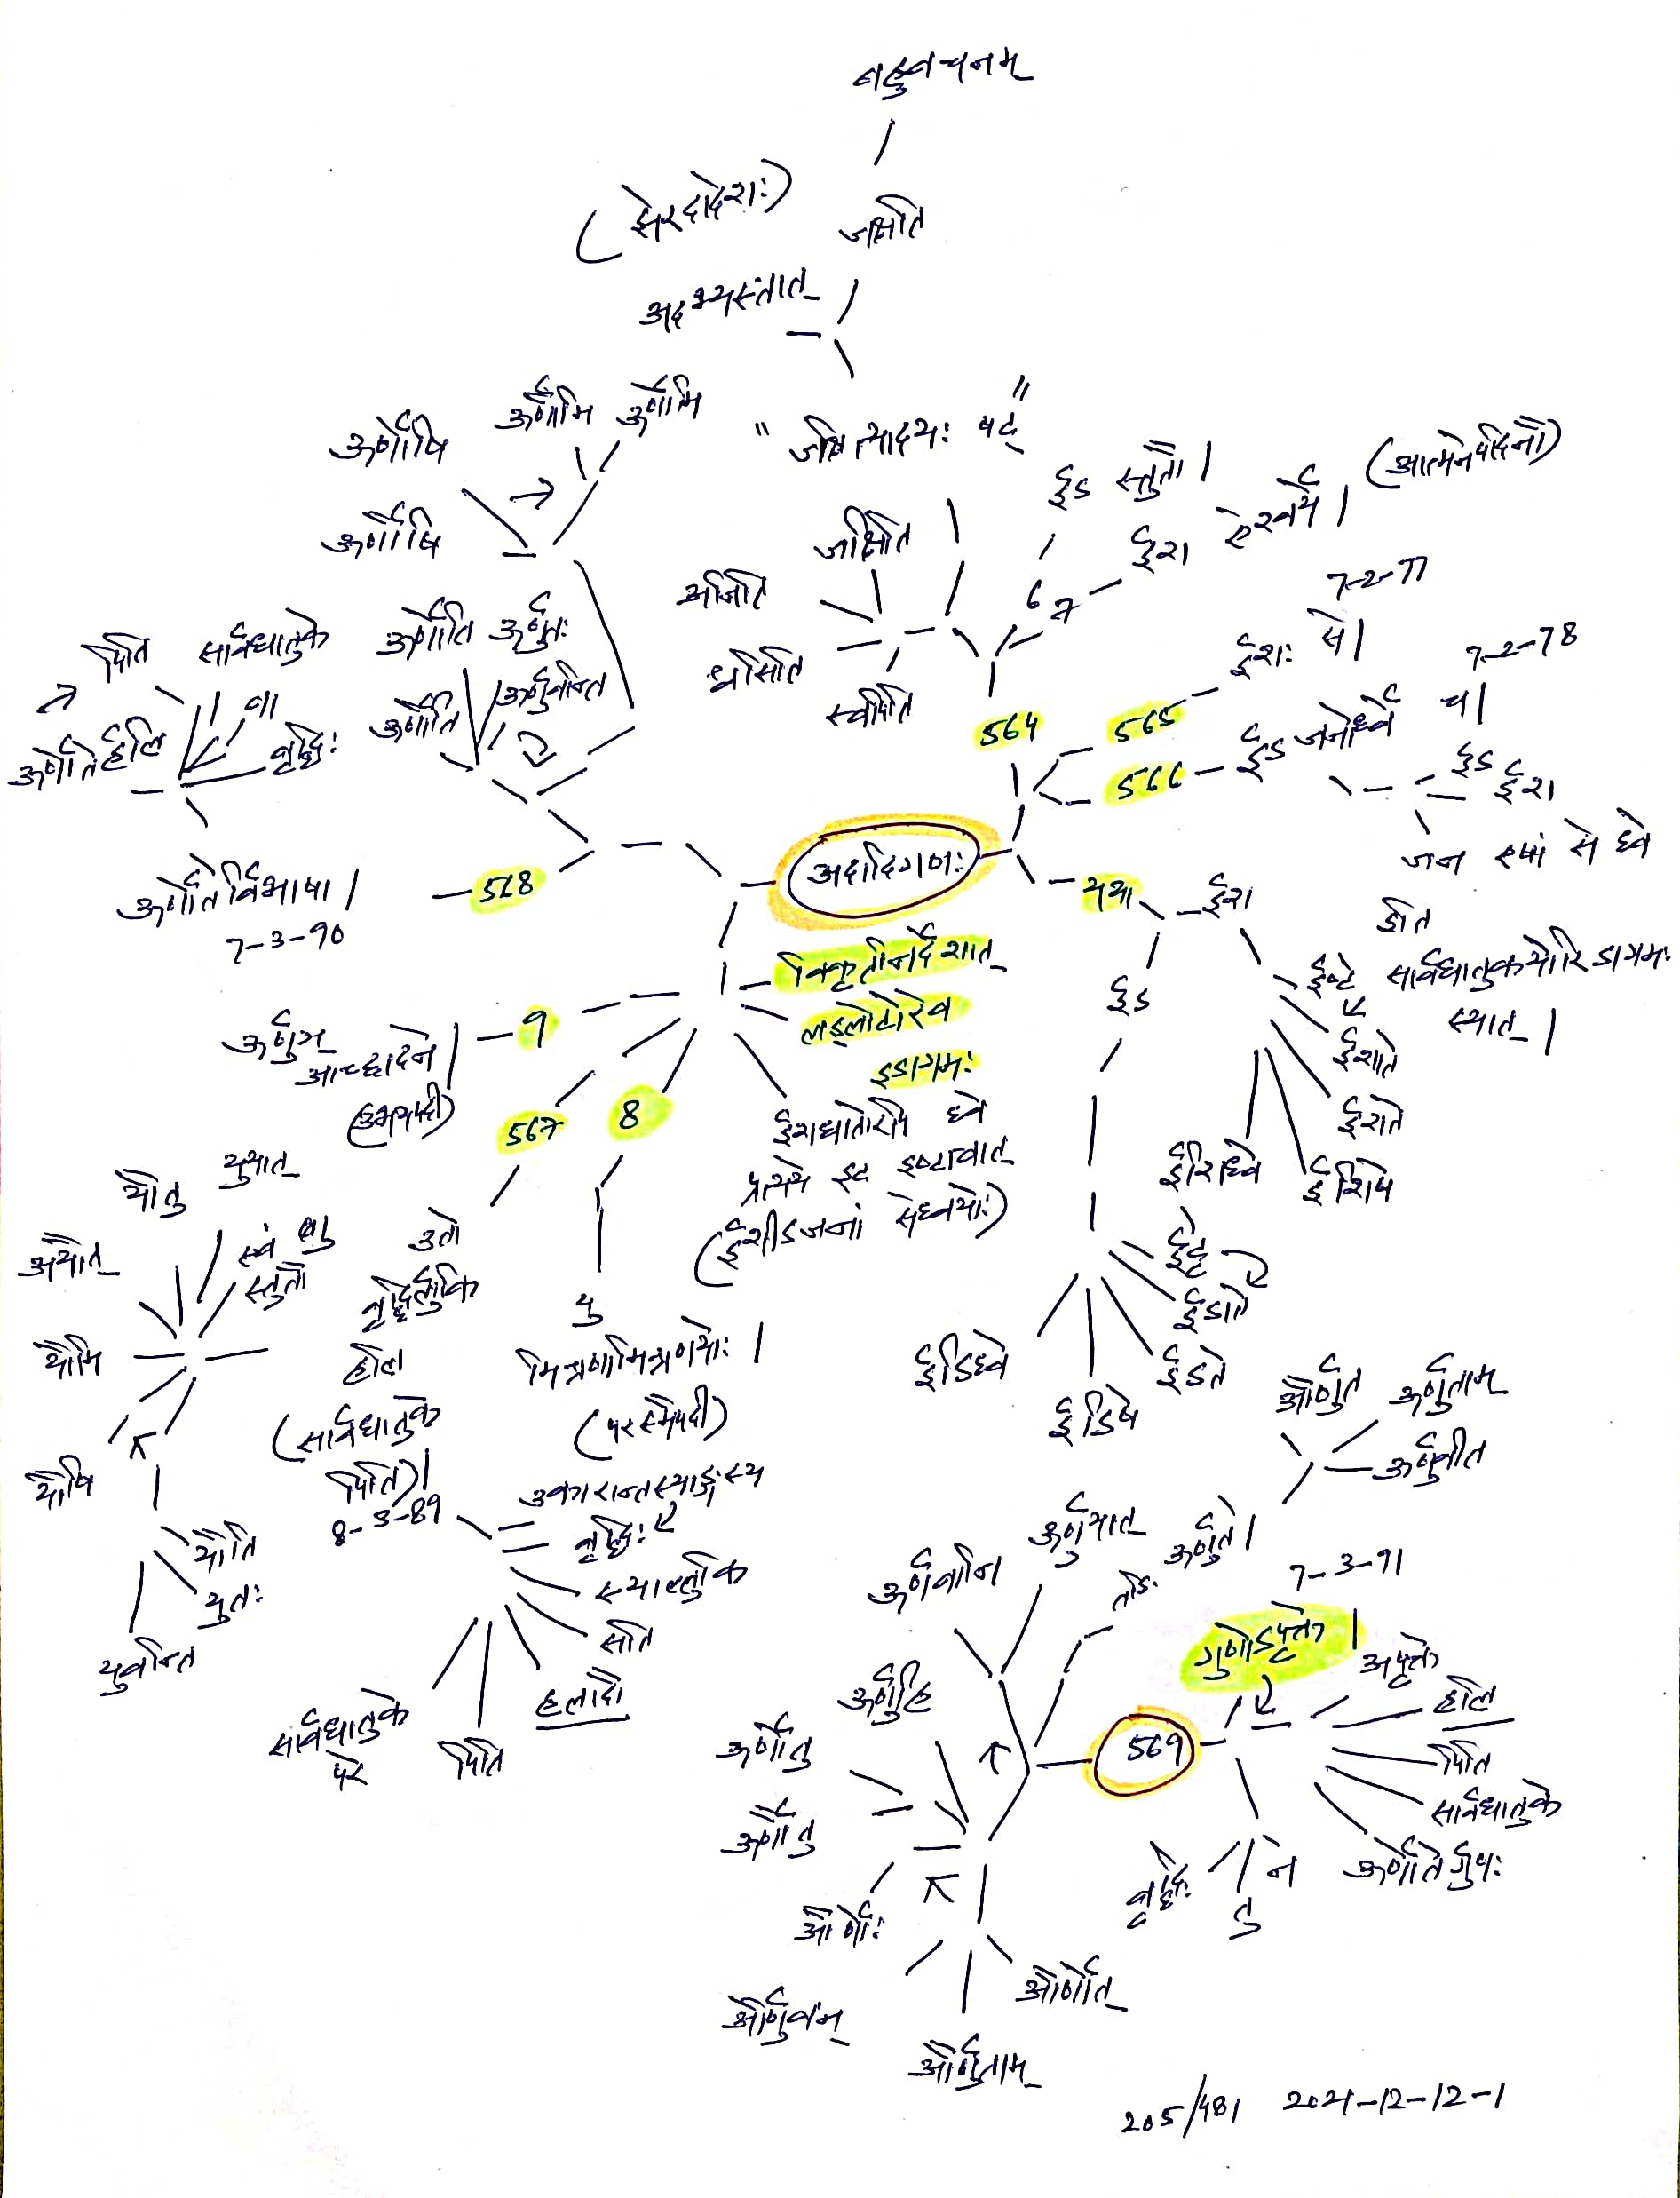 बहुवचनम्
(झेरदादेशः)
जक्षति
अदभ्यस्तात्
"जक्षित्यादयः षट्"
ऊर्णोमि ऊर्णौमि
ऊर्णोषि
ऊर्णौषि
ईड स्तुतौ।
ईश ऐश्वर्ये।
(आत्मनेपदिनौ)
6
7
जक्षिति
अनिति
श्वसिति
स्वपिति
564
565
ईशः से।
7-2-77
566
ईड जनोर्ध्वे च।
7-2-78
ईड
ईश
जन एषां से ध्वे
इति
सार्वधातुकयोरिडागमः
स्यात्।
पिति
सार्वधातुके
वा
वृद्धिः
हलि
ऊर्णोते
ऊर्णोति ऊर्णुतः
ऊर्णौति
ऊर्णुवन्ति
568
ऊर्णोतेर्विभाषा।
7-3-90
अदादिगणः
यथा
ईश
ईष्टे
ईशाते
ईशते
ईशिषे
ईशिध्वे
ईड
ईट्टे
ईडाते
ईडते
ईडिषे
ईडिध्वे
विकृतिनिर्देशात्
लङ्लोटोरेव
इडागमः
ईशधातोरपि ध्वे
प्रत्यये इट् इष्टत्वात्
(ईशीडजनां सेध्वयोः)
9
ऊर्णुञ्
आच्छादने।
(उभयपदी)
567
उतो
वृद्धिर्लुकि
हलि
(सार्वधातुके
पिति)।
8-3-89
8
यु
मिश्रणामिश्रणयोः।
(परस्मैपदी)
यौतु
युयात्
अयौत्
एवं षु
स्तुतौ
यौमि
यौषि
यौति
युतः
युवन्ति
उकारान्तस्याङ्गस्य
वृद्धिः
स्याल्लुकि
सति
हलादौ
पिति
सार्वधातुके
परे
569
गुणोऽपृक्ते।
7-3-91
अपृक्ते
हलि
पिति
सार्वधातुके
ऊर्णोतेर्गुणः
न
तु
वृद्धिः
तङि
ऊर्णुते।
और्णुत
ऊर्णुताम्
ऊर्णुवीत
ऊर्णुयात्
ऊर्णवानि
ऊर्णुहि
ऊर्णोतु
ऊर्णौतु
और्णोः
और्णुवम्
और्णुताम्
और्णोत्
205/481 2021-12-12-1